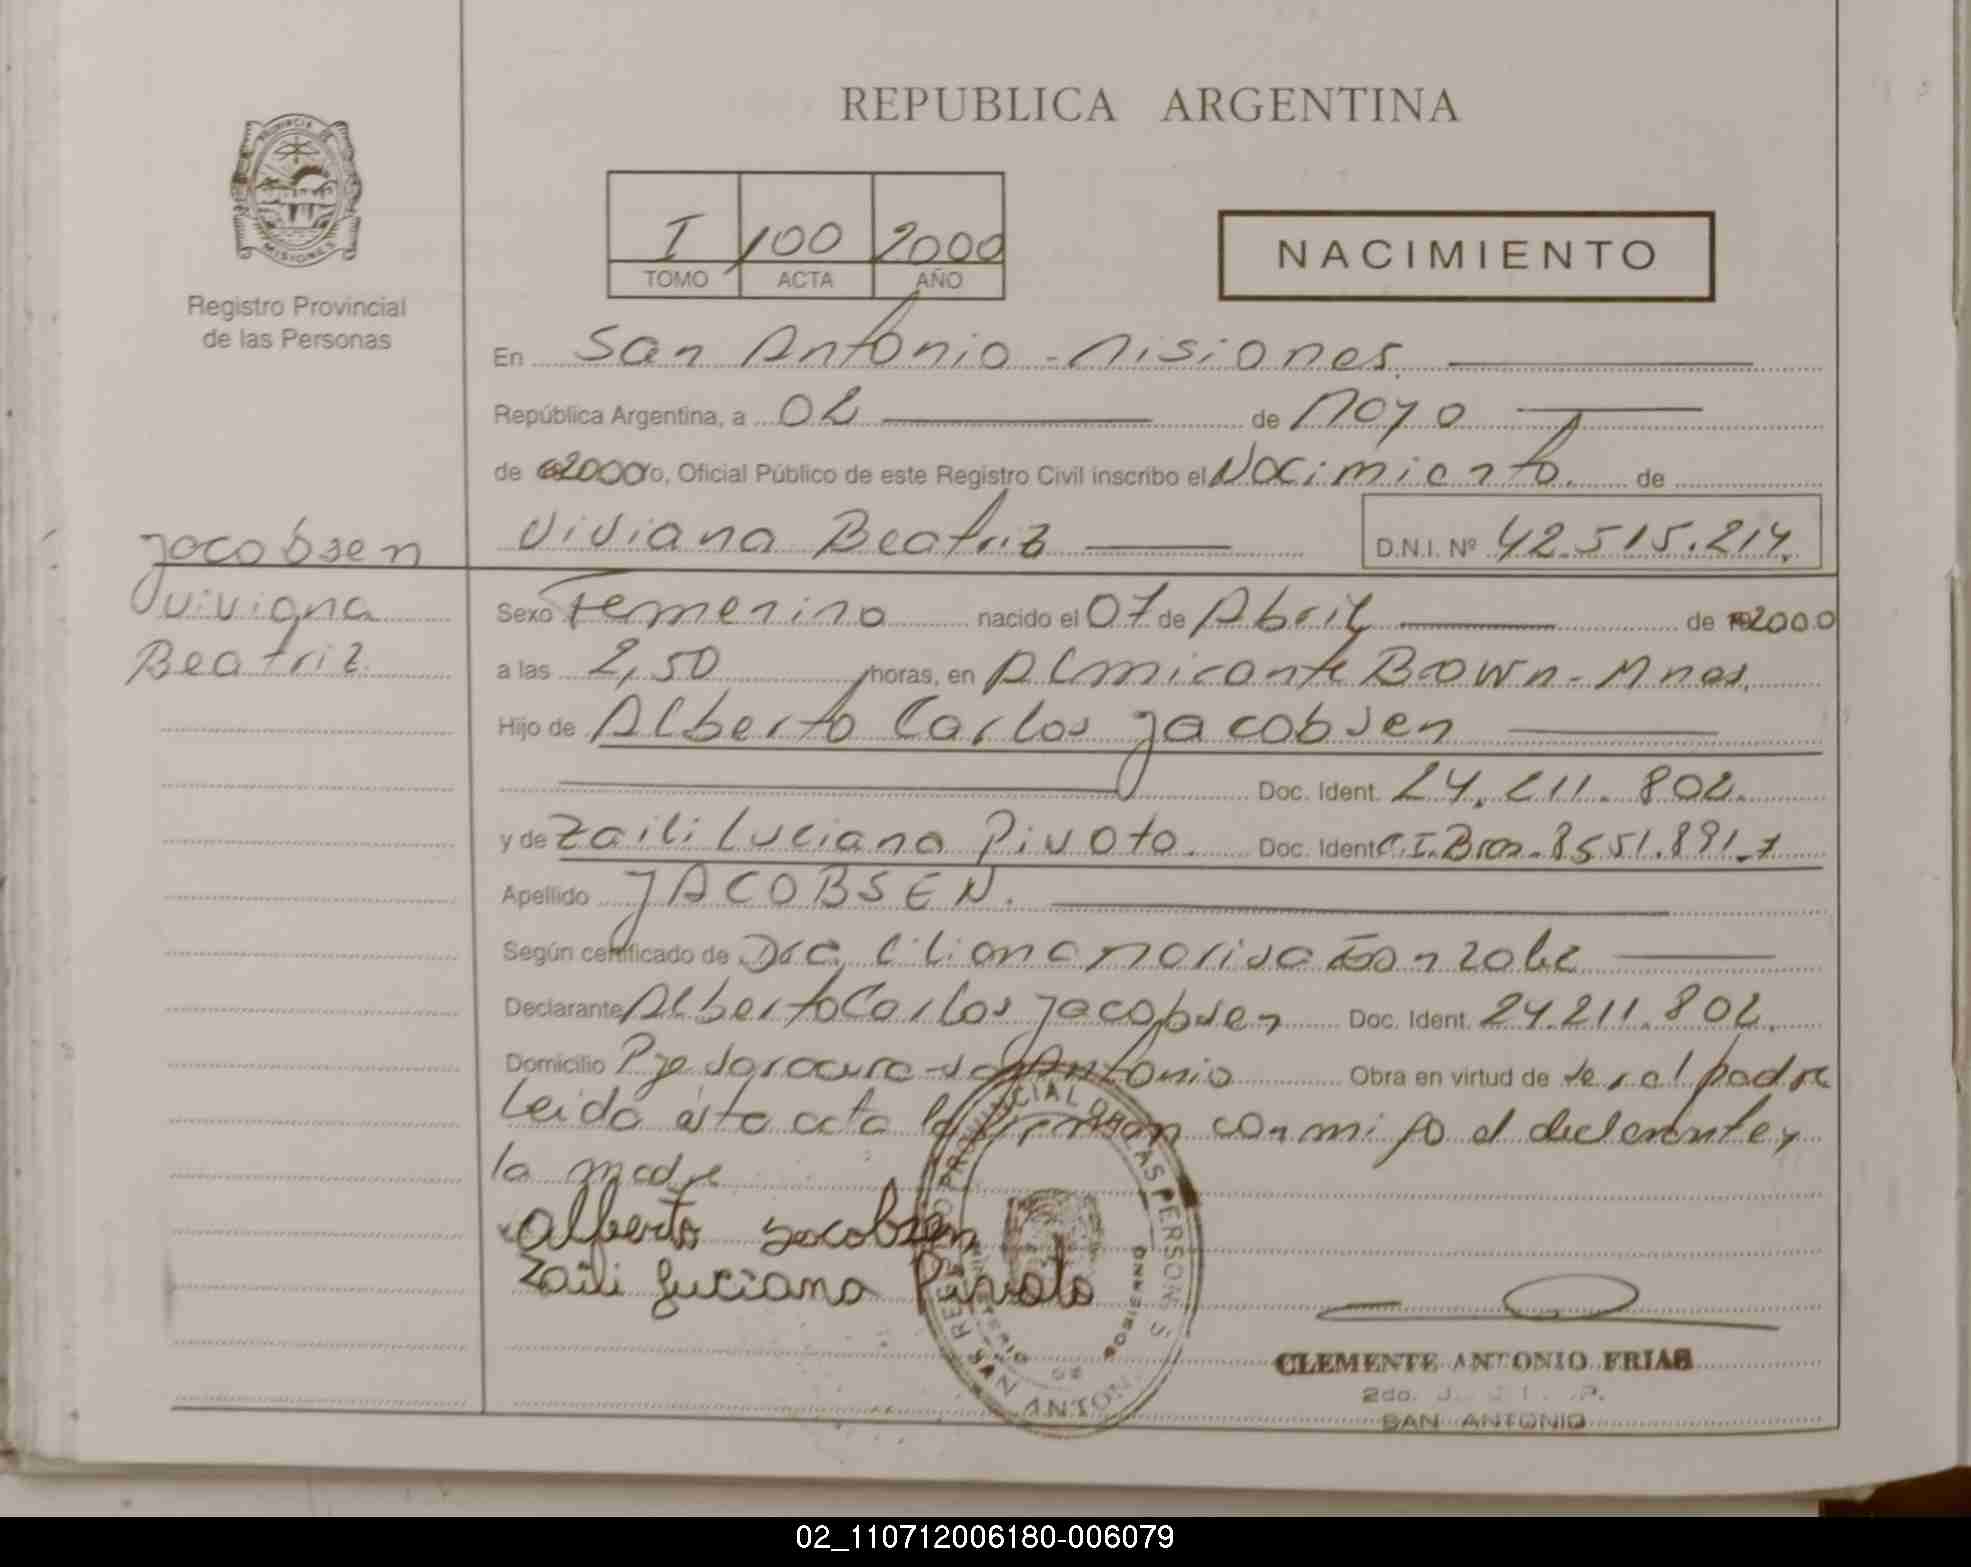 REPUBLICA ARGENTINA
PROVINCIA DE
MISIONES
Registro Provincial
de las Personas
I 100 2000
TOMO ACTA AÑO
NACIMIENTO
En San Antonio - Misiones.
República Argentina, a 02 de Mayo
de 2000 yo, Oficial Público de este Registro Civil inscribo el Nacimiento. de
Viviana Beatriz D.N.I. Nº 42.515.214.
Jacobsen
Viviana
Beatriz.
Sexo Femenino nacido el 07 de Abril de 2000
a las 2,50 horas, en Almirante Brown - Mnes.
Hijo de Alberto Carlos Jacobsen
Doc. Ident. 24.211.802.
y de Zaili Luciana Pivoto. Doc. Ident C.I. Bras. 8551.891-7
Apellido JACOBSEN.
Según certificado de Dra. Liliana Marisa Gonzalez
Declarante Alberto Carlos Jacobsen Doc. Ident. 24.211.802.
Domicilio Pje Antonio Obra en virtud de ser el padre
Leida esta acta la firman conmigo el declarante y
la madre
Alberto Jacobsen
Zaili Luciana Pivoto
REGISTRO PROVINCIAL DE LAS PERSONAS
MINISTERIO DE GOBIERNO
SAN ANTONIO
CLEMENTE ANTONIO FRIAS
2do.
SAN ANTONIO
02_110712006180-006079